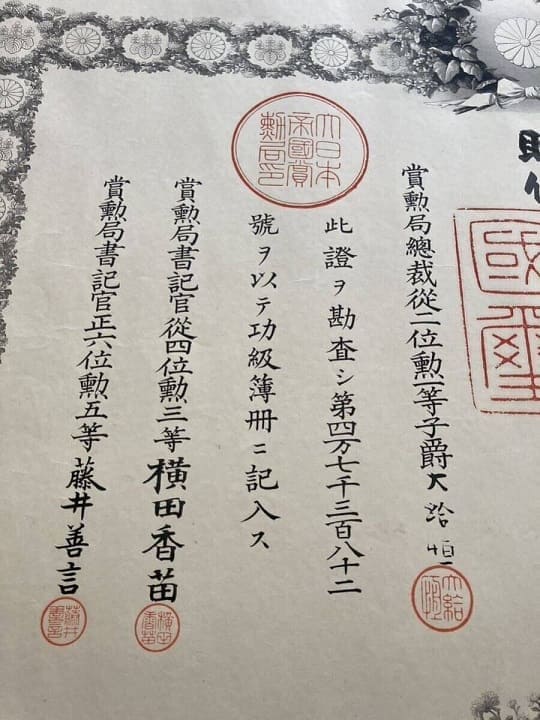 國璽
賞勲局總裁從二位勲一等子爵大給恒
大給恒
大日本帝國賞勳局印
此證ヲ勘査シ第四万七千三百八十二
號ヲ以テ功級簿冊ニ記入ス
賞勲局書記官從四位勲三等横田香苗
横田香苗
賞勲局書記官正六位勲五等藤井善言
藤井善言